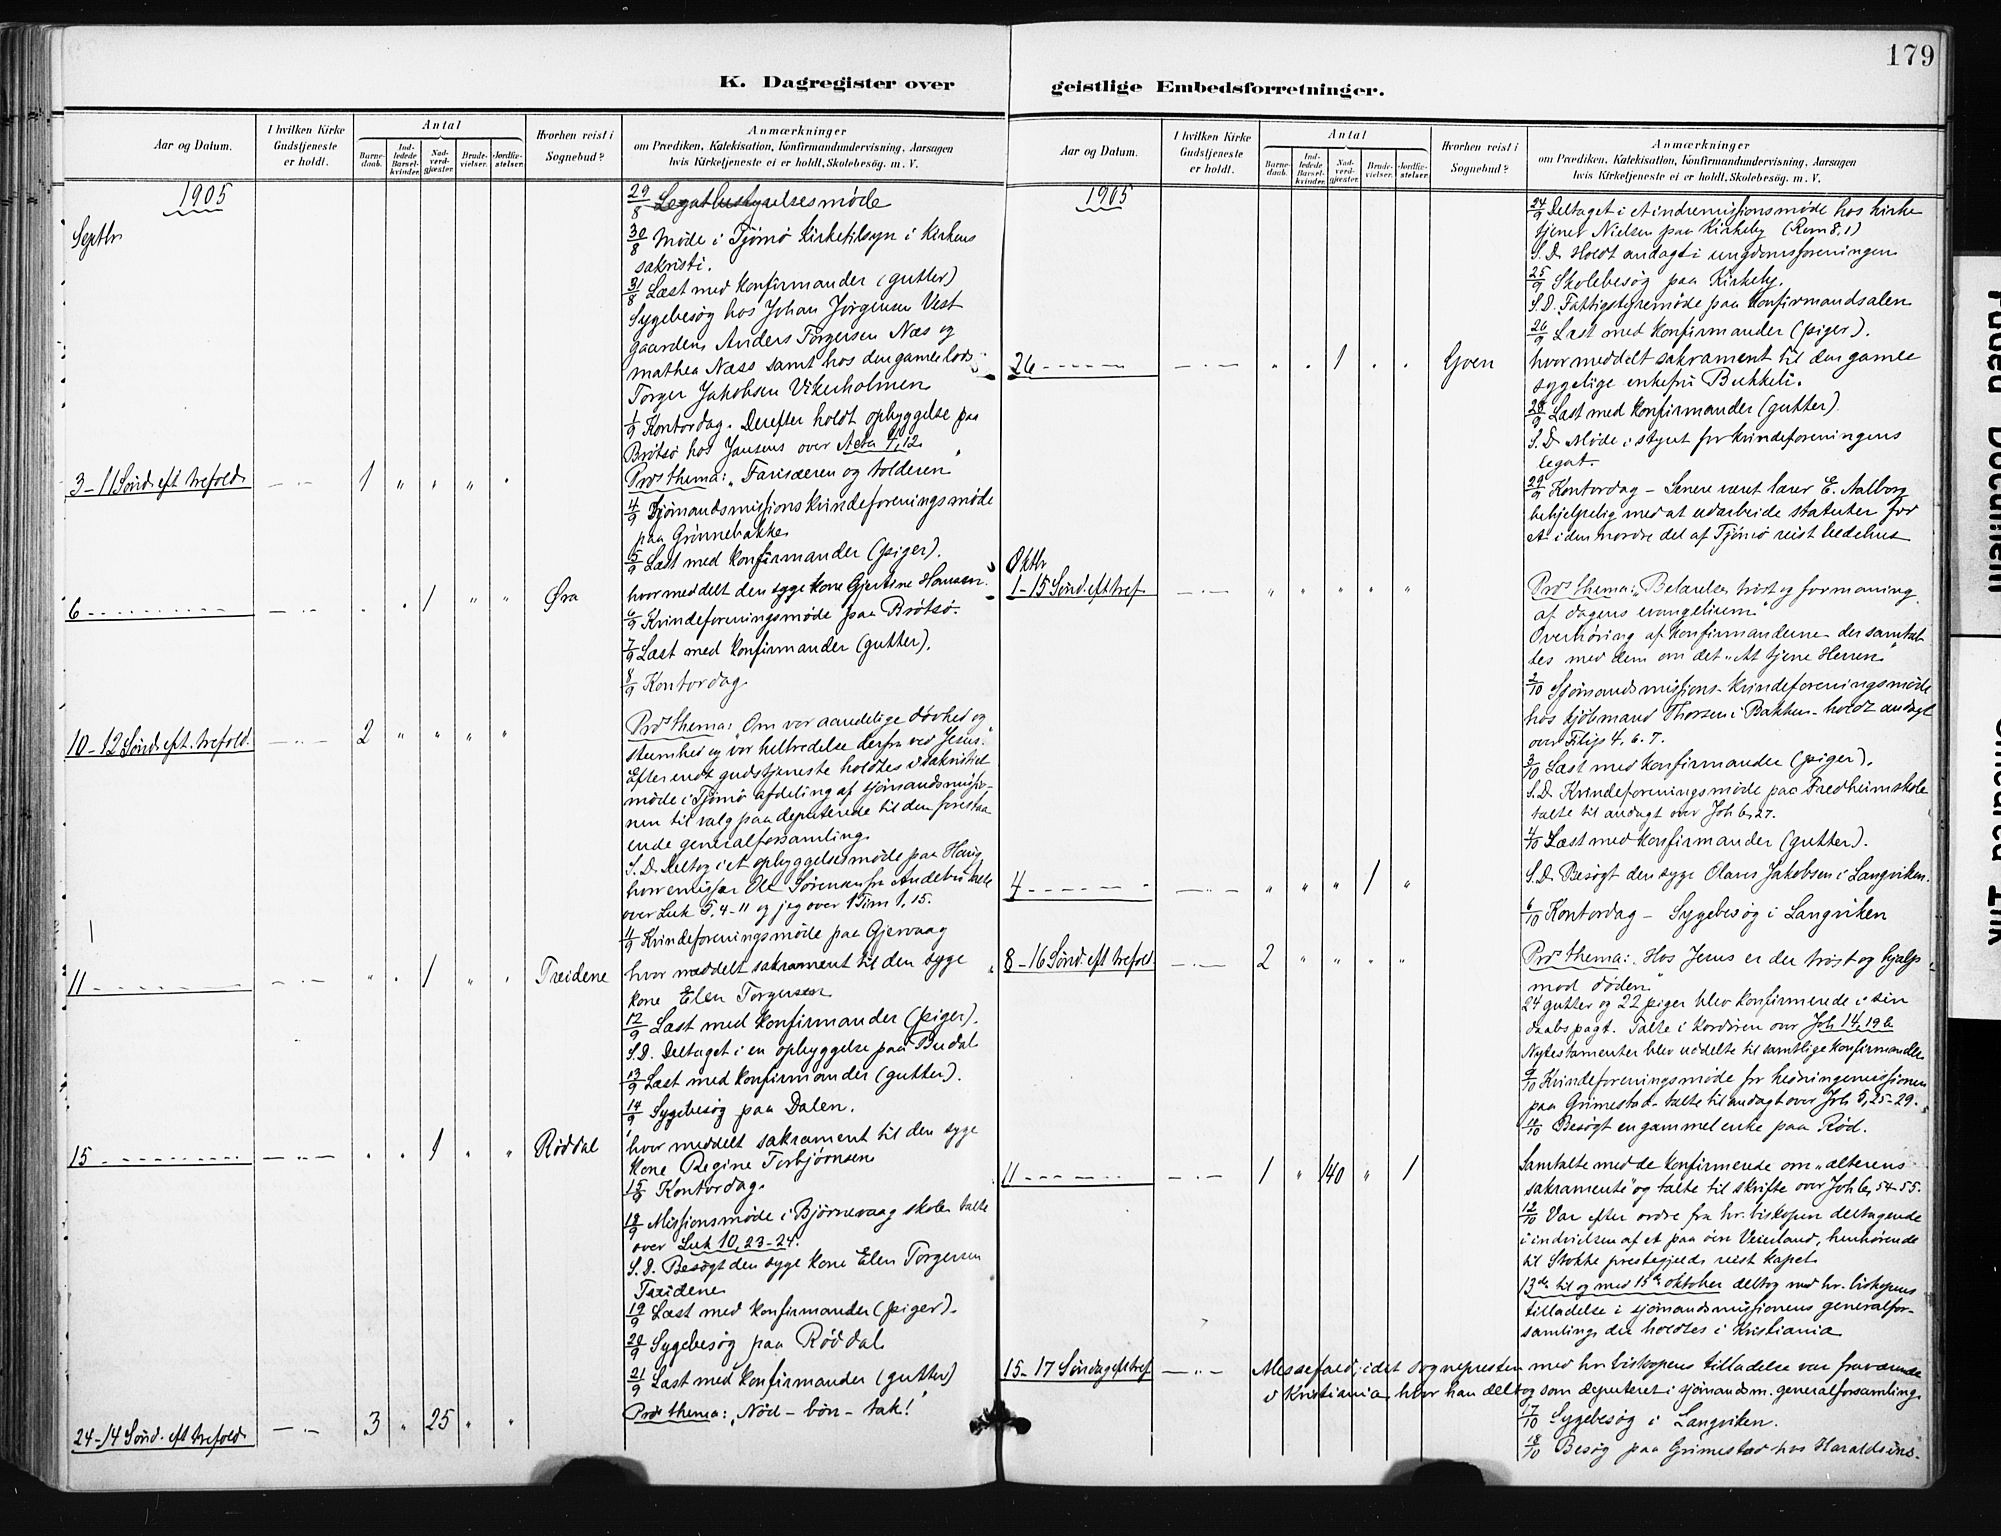 179
K. Dagregister over
geistlige Embedsforretninger.
Aar og Datum.
I hvilken Kirke
Gudstjeneste
er holdt.
Antal
Barne-
daab.
Ind-
ledede
Barsel-
kvinder.
Nad-
verd-
gjæster.
Brude-
vielser.
Jordfæ-
stelser.
Hvorhen reist i
Sognebud?
Anmærkninger
om Prædiken, Katekisation, Konfirmandundervisning, Aarsagen
hvis Kirketjeneste ei er holdt, Skolebesøg. m. V.
1905
Septbr
29/8 Legatbestyrelsesmøde
30/8 Møde i Tjømø Kirketilsyn i kirkens
sakristi.
31/8 Læst med konfirmander (gutter)
Sygebesøg hos Johan Jørgensen Vest
gaarden, Anders Torgersen Næs og
mathea Næss samt hos den gamle lods
Torger Jakobsen Vikerholmen
1/9 Kontordag. Derefter holdt opbyggelse paa
Brøtsø hos Jansens over Acta 4, 12
3 - 11 Sønd. eft trefold. 1
Præd thema: "Farisæeren og tolderen"
4/9 Sjømandsmissionskvindeforeningsmøde
paa Grønnebakke
5/9 Læst med konfirmander (piger).
6 1 Øra
hvor meddelt den syge kone Gjertine Hansen.
6/9 Kvindeforeningsmøde paa Brøtsø.
7/9 Læst med konfirmander (gutter).
8/9 Kontordag
10 - 12 Sønd. eft. trefold. 2
Præd thema: "Om vor aandelige døvhed og
stumhed og vor helbredelse derfra ved Jesus."
Efter endt gudstjeneste holdtes i sakristiet
møde i Tjømø afdeling af sjømandsmissio-
nen til valg paa deputerede til den forestaa
ende generalforsamling.
S. D. Deltog i et opbyggelsesmøde paa Haug
hvor emissær Ole Sørensen fra Andebu talte
over Luk 5, 4-11 og jeg over 1 Tim 1, 15.
11/9 Kvindeforeningsmøde paa Gjervaag
11 1 Treidene
hvor meddelt sakrament til den syge
kone Elen Torgersen
12/9 Læst med konfirmander (piger).
S. D. Deltaget i en opbyggelse paa Budal
13/9 Læst med konfirmander (gutter).
14/9 Sygebesøg paa Dalen.
15 1 Røddal
hvor meddelt sakrament til den syge
kone Regine Torbjørnsen
15/9 Kontordag.
18/9 Missionsmøde i Bjørnevaag skole talte
over Luk 10, 23-24.
S. D. Besøgt den syge kone Elen Torgersen
Treidene
19/9 Læst med konfirmander (piger).
20/9 Sygebesøg paa Røddal
21/9 Læst med konfirmander (gutter)
24 - 14 Sønd. eft trefold. 3 25
Præd thema: "Nød - bøn - tak!"
Aar og Datum.
I hvilken Kirke
Gudstjeneste
er holdt.
Antal
Barne-
daab.
Ind-
ledede
Barsel-
kvinder.
Nad-
verd-
gjæster.
Brude-
vielser.
Jordfæ-
stelser.
Hvorhen reist i
Sognebud?
Anmærkninger
om Prædiken, Katekisation, Konfirmandundervisning, Aarsagen
hvis Kirketjeneste ei er holdt, Skolebesøg. m. V.
1905
24/9 Deltaget i et indremissionsmøde hos kirke
tjener Nielsen paa Kirkeby (Rom 8, 1)
S. D. Holdt andagt i ungdomsforeningen
25/9 Skolebesøg paa Kirkeby.
S. D. Fattigstyremøde paa Konfirmandsalen
26/9 Læst med konfirmander (piger).
26 1 Gven
hvor meddelt sakrament til den gamle
sygelige enkefru Bukkeli.
28/9 Læst med konfirmander (gutter).
S. D. Møde i styret for kvindeforeningens
legat.
29/9 Kontordag - Senere været lærer E. Aalborg
behjelpelig med at udarbeide statuter for
et i den nordre del af Tjømø reist bedehus
Oktbr
1 - 15 Sønd. eft tref.
Præd thema: "Belærelse, trøst og formaning
af dagens evangelium"
Overhøring af konfirmanderne - der samtal
tes med dem om det "At tjene Herren"
2/10 Sjømandsmissions-kvindeforeningsmøde
hos kjøbmand Thorsen i Bakken - holdt andagt
over Filip 4, 6. 7.
3/10 Læst med konfirmander (piger).
S. D. Kvindeforeningsmøde paa Fredheim skole
talte til andagt over Joh 6, 27.
4/10 Læst med konfirmander (gutter).
4 1
S. D. Besøgt den syge Olaves Jakobsen i Langviken.
6/10 Kontordag - Sygebesøg i Langviken
8 - 16 Sønd. eft trefold. 2
Præd thema: "Hos Jesus er der trøst og hjælp
mod døden"
24 gutter og 22 piger blev konfirmerede i sin
daabspagt. Talte i kordøren over Joh 14, 19 b
Nytestamenter blev uddelte til samtlige konfirmander
9/10 Kvindeforeningsmøde for hedningemissionen
paa Grimestad - talte til andagt over Joh 5, 25-29.
10/10 Besøgt en gammel enke paa Rød.
11 1 140 1
Samtalte med de konfirmerede om "alterens
sakramente" og talte til skrifte over Joh 6, 54-55.
12/10 Var efter ordre fra hr. biskopen deltagende
i indvielsen af et paa øen Veierland, henhørende
til Stokke prestegjeld, reist kapel
13de til og med 15de oktober deltog med hr. biskopens
tilladelse i sjømandsmissionens generalfor-
samling, der holdtes i Kristiania
15 - 17 Søndag eft tref.
Messefald, idet sognepresten med hr. biskopens tilladelse var fraværende
i Kristiania, hvor han deltog som deputeret i sjømandsm. generalforsamling
17/10 Sygebesøg i Langviken.
18/10 Besøg paa Grimestad hos Haraldsens.